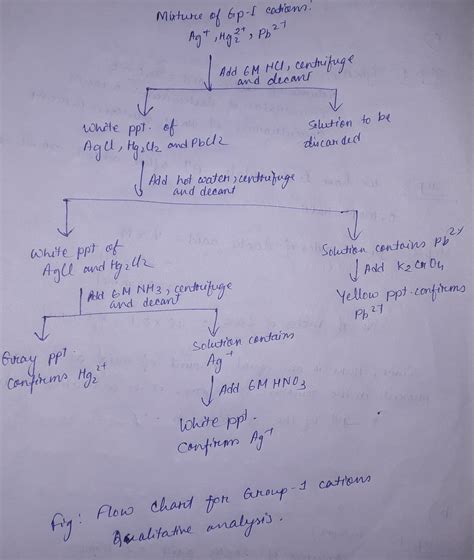 Mixture of Gp-I cations:
Ag+, Hg2 2+, Pb2+
Add 6M HCl, centrifuge
and decant
White ppt. of
AgCl, Hg2Cl2 and PbCl2
Solution to be
discarded
Add hot water, centrifuge
and decant
White ppt of
AgCl and Hg2Cl2
Solution contains Pb2+
Add K2CrO4
Yellow ppt. confirms
Pb2+
Add 6M NH3, centrifuge
and decant
Gray ppt.
confirms Hg2 2+
Solution contains
Ag+
Add 6M HNO3
White ppt.
Confirms Ag+
Fig: Flow chart for Group-1 cations
Qualitative analysis.